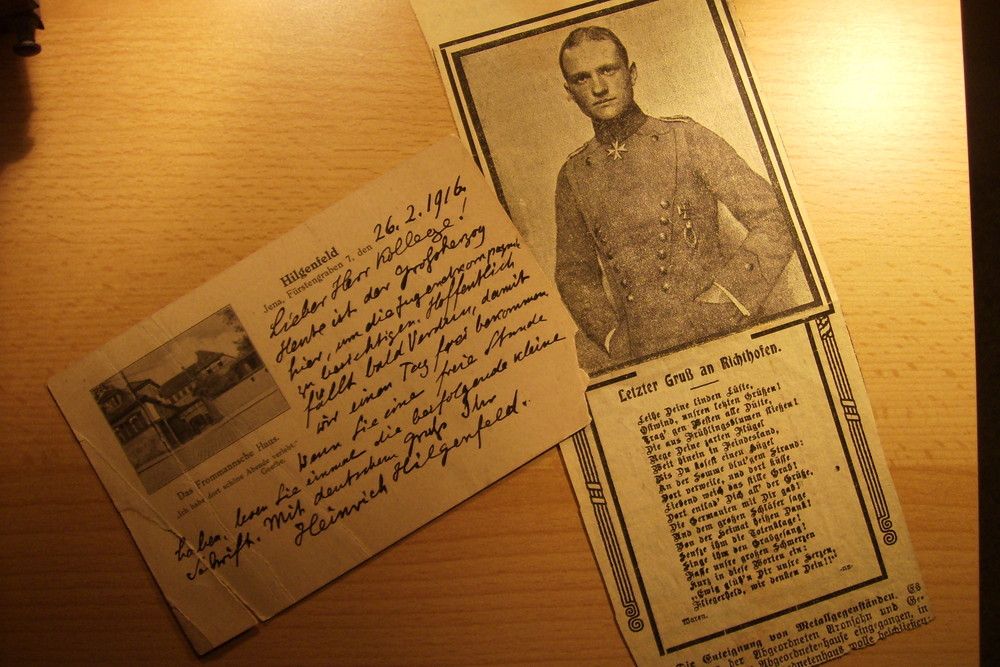 Hilgenfeld
Jena, Fürstengraben 7, den 26. 2. 1916.
Lieber Herr Kollege!
Heute ist der Großherzog
hier, um die Jugendkompagnie
zu besichtigen. Hoffentlich
fällt bald Verdun, damit
wir einen Tag frei bekommen
Wenn Sie eine freie Stunde
haben, lesen Sie einmal die beifolgende kleine
Schrift. Mit deutschem Gruß Ihr
Heinrich Hilgenfeld.
Das Frommannsche Haus.
„Ich habe dort schöne Abende verlebt.“
Goethe.
Letzter Gruß an Richthofen.
Leihe Deine linden Lüfte,
Ostwind, unsren letzten Grüßen!
Trag' gen Westen alle Düfte,
Die aus Frühlingsblumen fließen!
Rege Deine zarten Flügel
Weit hinein in Feindesland,
Bis Du küssest einen Hügel
An der Somme blut'gem Strand:
Dort verweile, und dort küsse
Liebend weich das stille Grab!
Dort entlad' Dich all' der Grüße,
Die Germanien mit Dir gab!
Und dem großen Schläfer sage
Von der Heimat heißen Dank!
Seufze ihm die Totenklage!
Singe ihm den Grabgesang!
Fasse unsre großen Schmerzen
Kurz in diese Worten ein:
„Ewig glüh'n Dir unsre Herzen,
Fliegerheld, wir denken Dein!!“
Waren. -na-
Die Enteignung von Metallgegenständen. Es
der Abgeordneten Aronsohn und Ge-
Abgeordnetenhause eingegangen, in
Abgeordnetenhaus wolle beschließen: